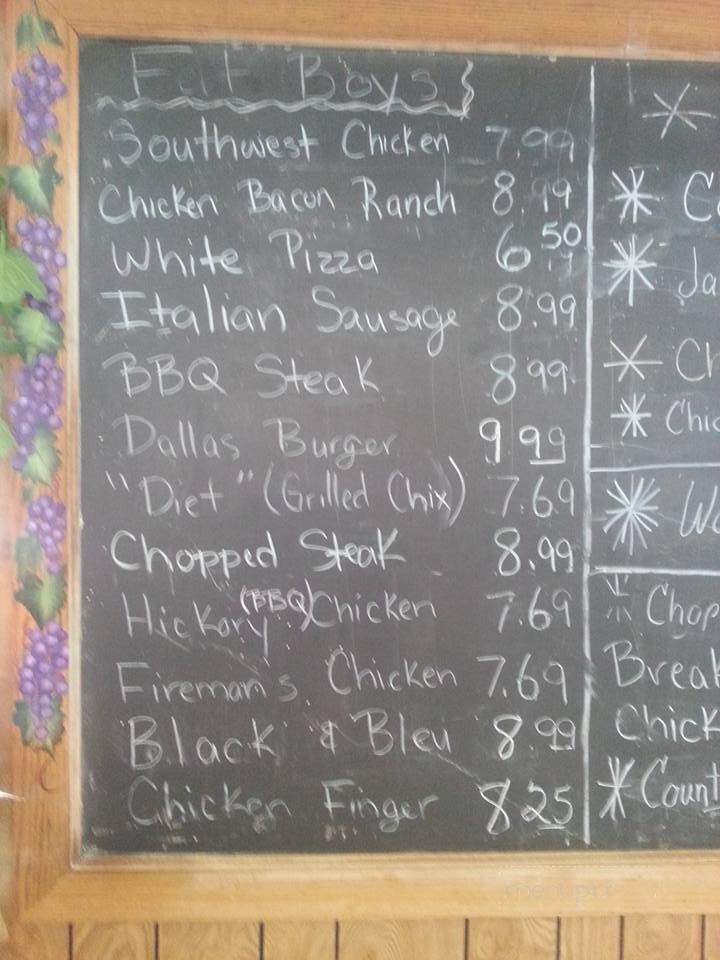 Fat Boys
Southwest Chicken 7.99
Chicken Bacon Ranch 8.99
White Pizza 6 50
Italian Sausage 8.99
BBQ Steak 8 99
Dallas Burger 9 99
"Diet" (Grilled Chix) 7.69
Chopped Steak 8.99
Hickory (BBQ) Chicken 7.69
Fireman's Chicken 7.69
Black & Bleu 8.99
Chicken Finger 8 25
* 
* C
* Ja
* Ch
* Chic
* W
* Chop
Break
Chick
* Count
menupix